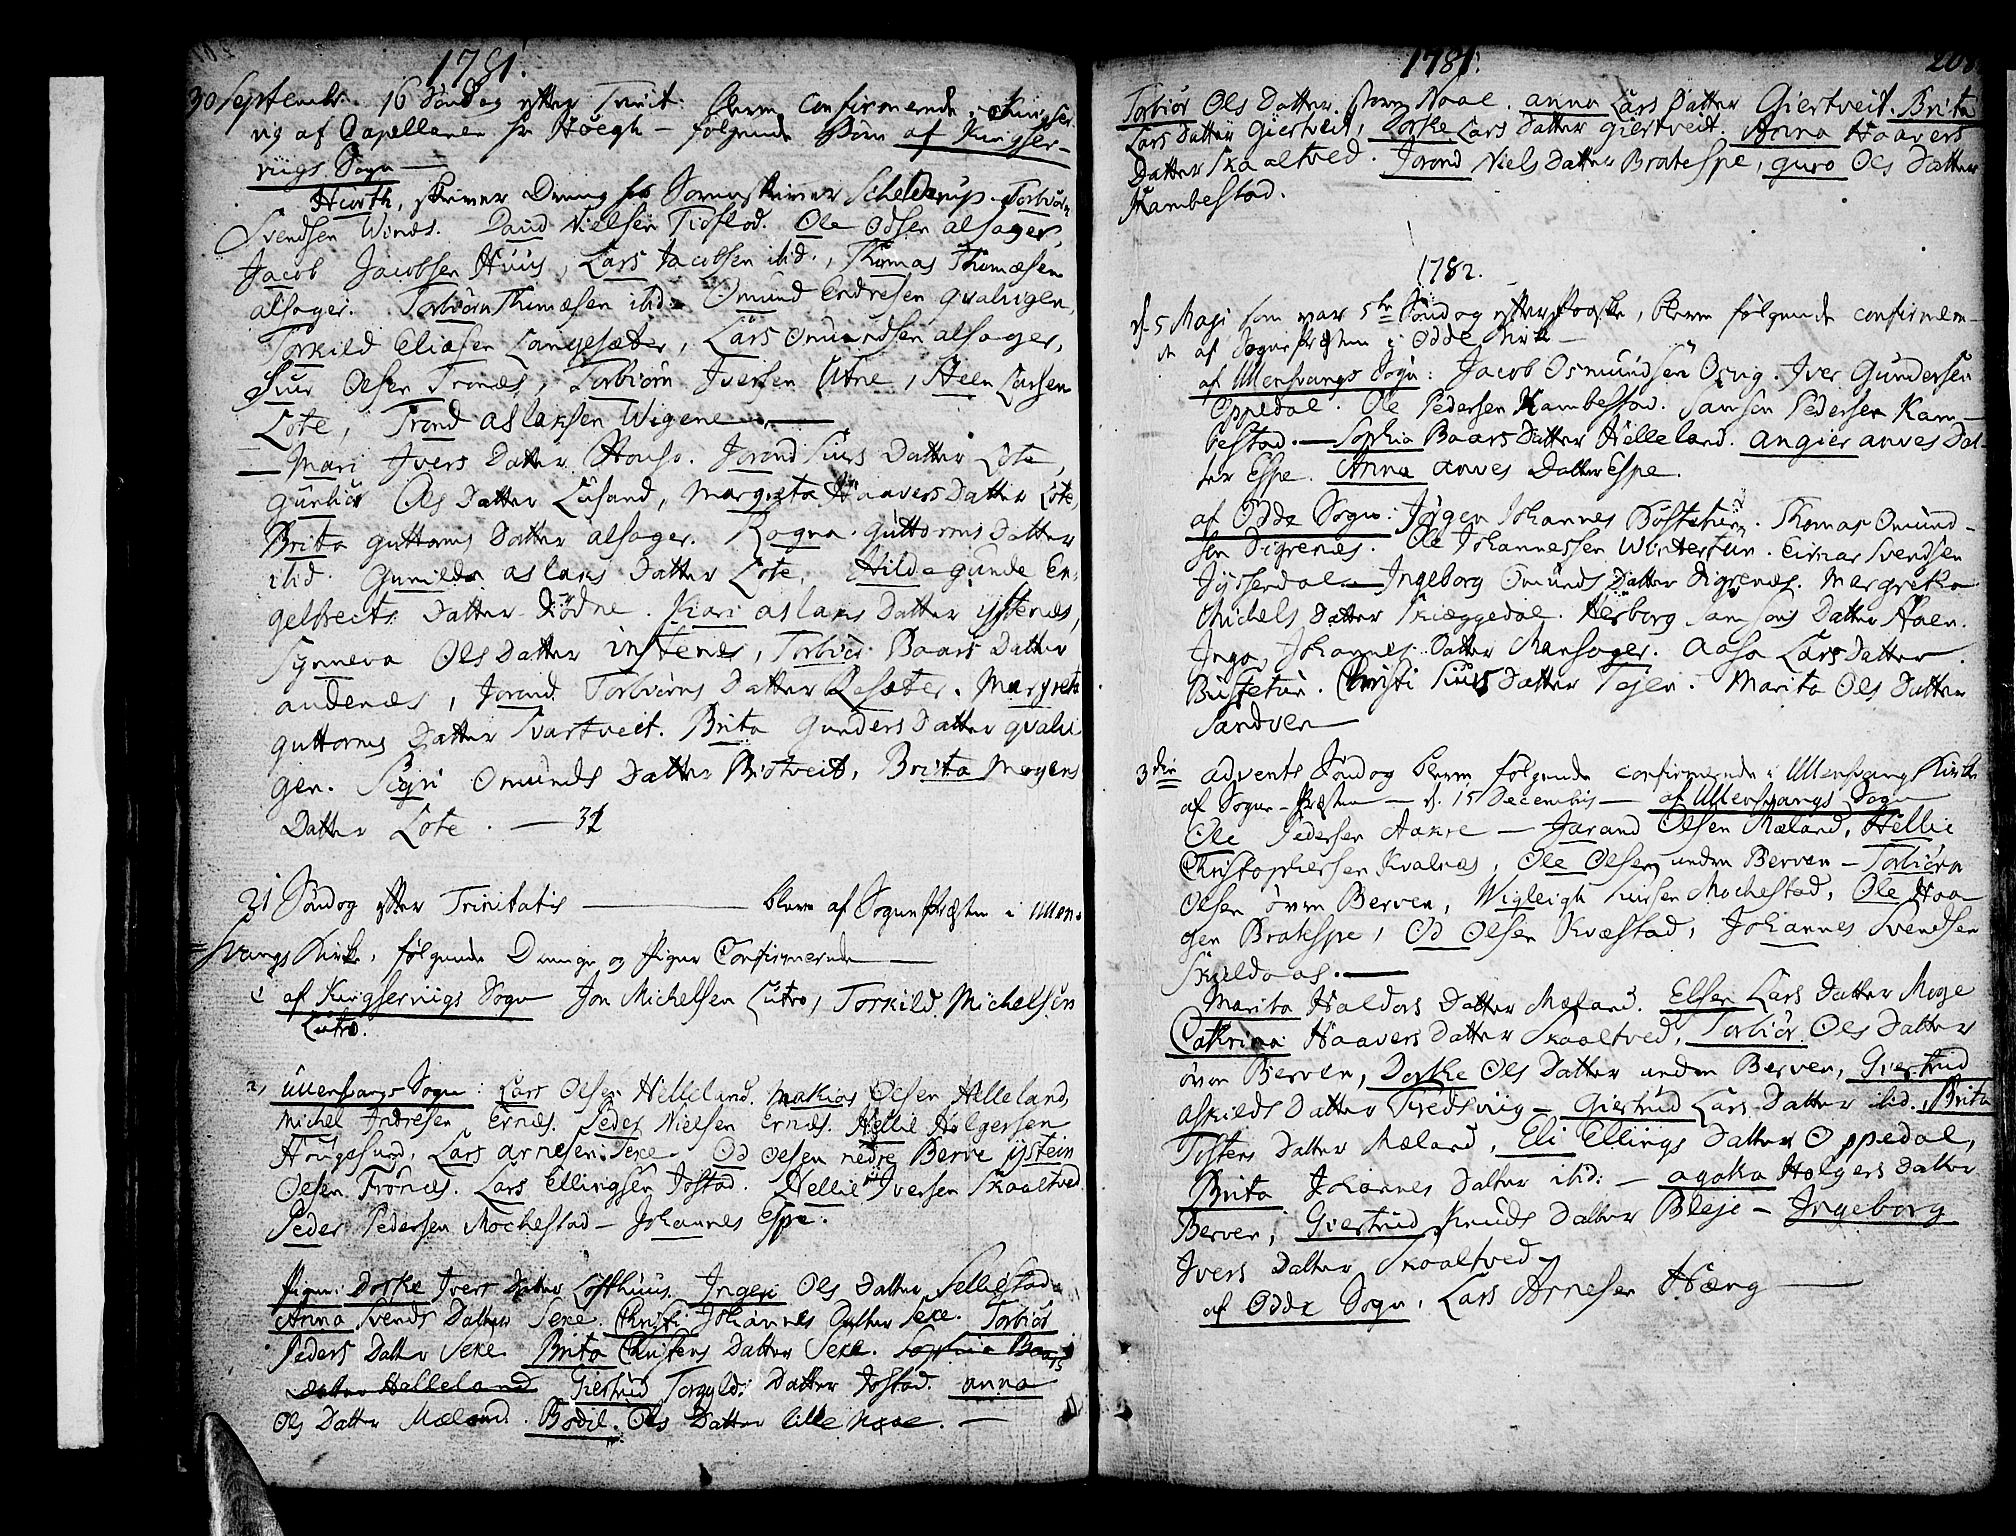 1781.
30 Septembr. 16 Søndag efter Trinit: bleve confirmerede i Kingser-
vig af Capellanen hr Höegh - følgende Børn af Kingser-
viigs Sogn
Hiorth, skriver Dreng hos Sorenskriver Schelderup. Torbiörn
Svendsen Winæs. David Nielsen Tidflod. Ole Odsen alsager,
Jacob Jacobsen Huus, Lars Jacobsen ibid., Thomas Thomæsen
alsager. Torbiörn Thomæsen ibid. Omund Endresen qvalvigen,
Torkild Eliæsen Langesæter, Lars Omundsen alsager,
Siur Olsen Tronæs, Torbiörn Iversen Utne, Steen Larsen
Lote, Trond aslaksen Wigene
Mari Ivers Datter House. Jorand Siurs Datter Lote,
Gunbiör Ols Datter Lusand, Margreta Haavers Datter Lote,
Brita guttorms Datter alsager. Ragna guttorms Datter
ibid. Gunilda aslaks Datter Lote, Hildegunde En-
gelbrects Datter Diödne. Kari aslaks Datter ystenæs,
Synneva Ols Datter instenes, Torbiör Baars Datter
andenæs, Jorand Torbiörns Datter Resæter. Margreta
guttorms Datter Svartveit. Brita Gunders Datter qvalvi
gen. Sigri Omunds Datter Bistveit, Brita Mogens
Datter Lote. - 31
21 Søndag efter Trinitatis bleve af Sogne Præsten i Ullens-
vangs Kirke, følgende Drenge og Piger Confirmerede
1 af Kingserviigs Sogn Jon Michelsen Lutro, Torkild Michelsen
Lutro.
2, Ullensvangs Sogn: Lars Olsen Helleland. Mathias Olsen Helleland,
Michel Andresen Ernæs. Peder Nielsen Ernæs. Hellie Holgersen
Hougesund, Lars arnesen Sexe. Od Olsen nedre Berve ÿstein
Olsen Frönæs. Lars Ellingsen Jostad. Hellie Iversen Skaaltved
Peder Pedersen Mochestad - Johannes Espe.
Piger: Dorthe Ivers Datter Lofthuus. Ingeri Ols Datter Sellestad
Anna Svends Datter Sexe. Christi Johannes Datter Sexe. Torbiör
Peders Datter Sexe Brita Christens Datter Sexe. Sophia Baars
Datter Helleland Giertrud Torgylds Datter Jostad. anna
Ols Datter Mæland. Bodil Ols Datter lille Naae. -
1781. 208
Torbiör Ols Datter store Naae. anna Lars Datter Giertveit. Brita
Lars Datter Giertveit, Dorthe Lars Datter giertveit. Anna Haavers
Datter Skaaltved. Jorand Niels Datter Bratespe, guro Ols Datter
Kambestad.
1782.
d. 5 Maji som var 5te Søndag efter Paaske, bleve følgende confirmere-
de af Sogne Præsten i Odde Kirke -
af Ullensvangs Sogn: Jacob Osmundsen Osvig. Iver Gundersen
Oppedal. Ole Pedersen Kambestad. Samson Pedersen Kam-
bestad. - Sophia Baars Datter Helleland. angier anves Dat-
ter Espe. Anna anves Datter Espe.
af Odde Sogn: Jörgen Johannes Böstetun. Thomas Omund-
sen Digrenæs. Ole Johannessen Wintertun. Einar Svendsen
Jysserdal - Ingeborg Omunds Datter Digrenæs. Margrethe
Michels Datter Skiæggedal. Herborg Samsons Datter Aaen.
Inga Johannes Datter Mansager. Aasa Lars Datter
Bustetun. Christi Siurs Datter Tejen. Marita Ols Datter
Sandven
3die advents Søndag bleve følgende confirmerede i Ullensvang Kirke
af Sogne-Præsten - d. 15 Decembris - af Ullensvangs Sogn
Ole Pedersen Aakre - Jarand Olsen Mæland, Hellie
Christophersen Kvalnæs, Ole Olsen neden Berven - Torbiörn
Olsen öven Berven, Wigleigh Siursen Mochestad, Ole Haa-
gen Bratespe, Od Olsen Kvæstad, Johannes Svendsen
Skieldaas.
Marita Haldors Datter Mæland. Elsen Lars Datter Mage
Cathrina Haavers Datter Skaaltved, Torbiör Ols Datter
öven Berven, Dorthe Ols Datter neden Berven, Giertrud
askilds Datter Fredsviig - Giertrud Lars Datter ibid. Brita
Tostens Datter Mæland, Eli Ellings Datter Oppedal,
Brita Johannes Datter ibid: - agatha Holgers Datter
Berven, Giertrud Knuds Datter Bleje - Ingeborg
Ivers Datter Skaaltved -
af Odde Sogn, Lars Arnesen Hæng